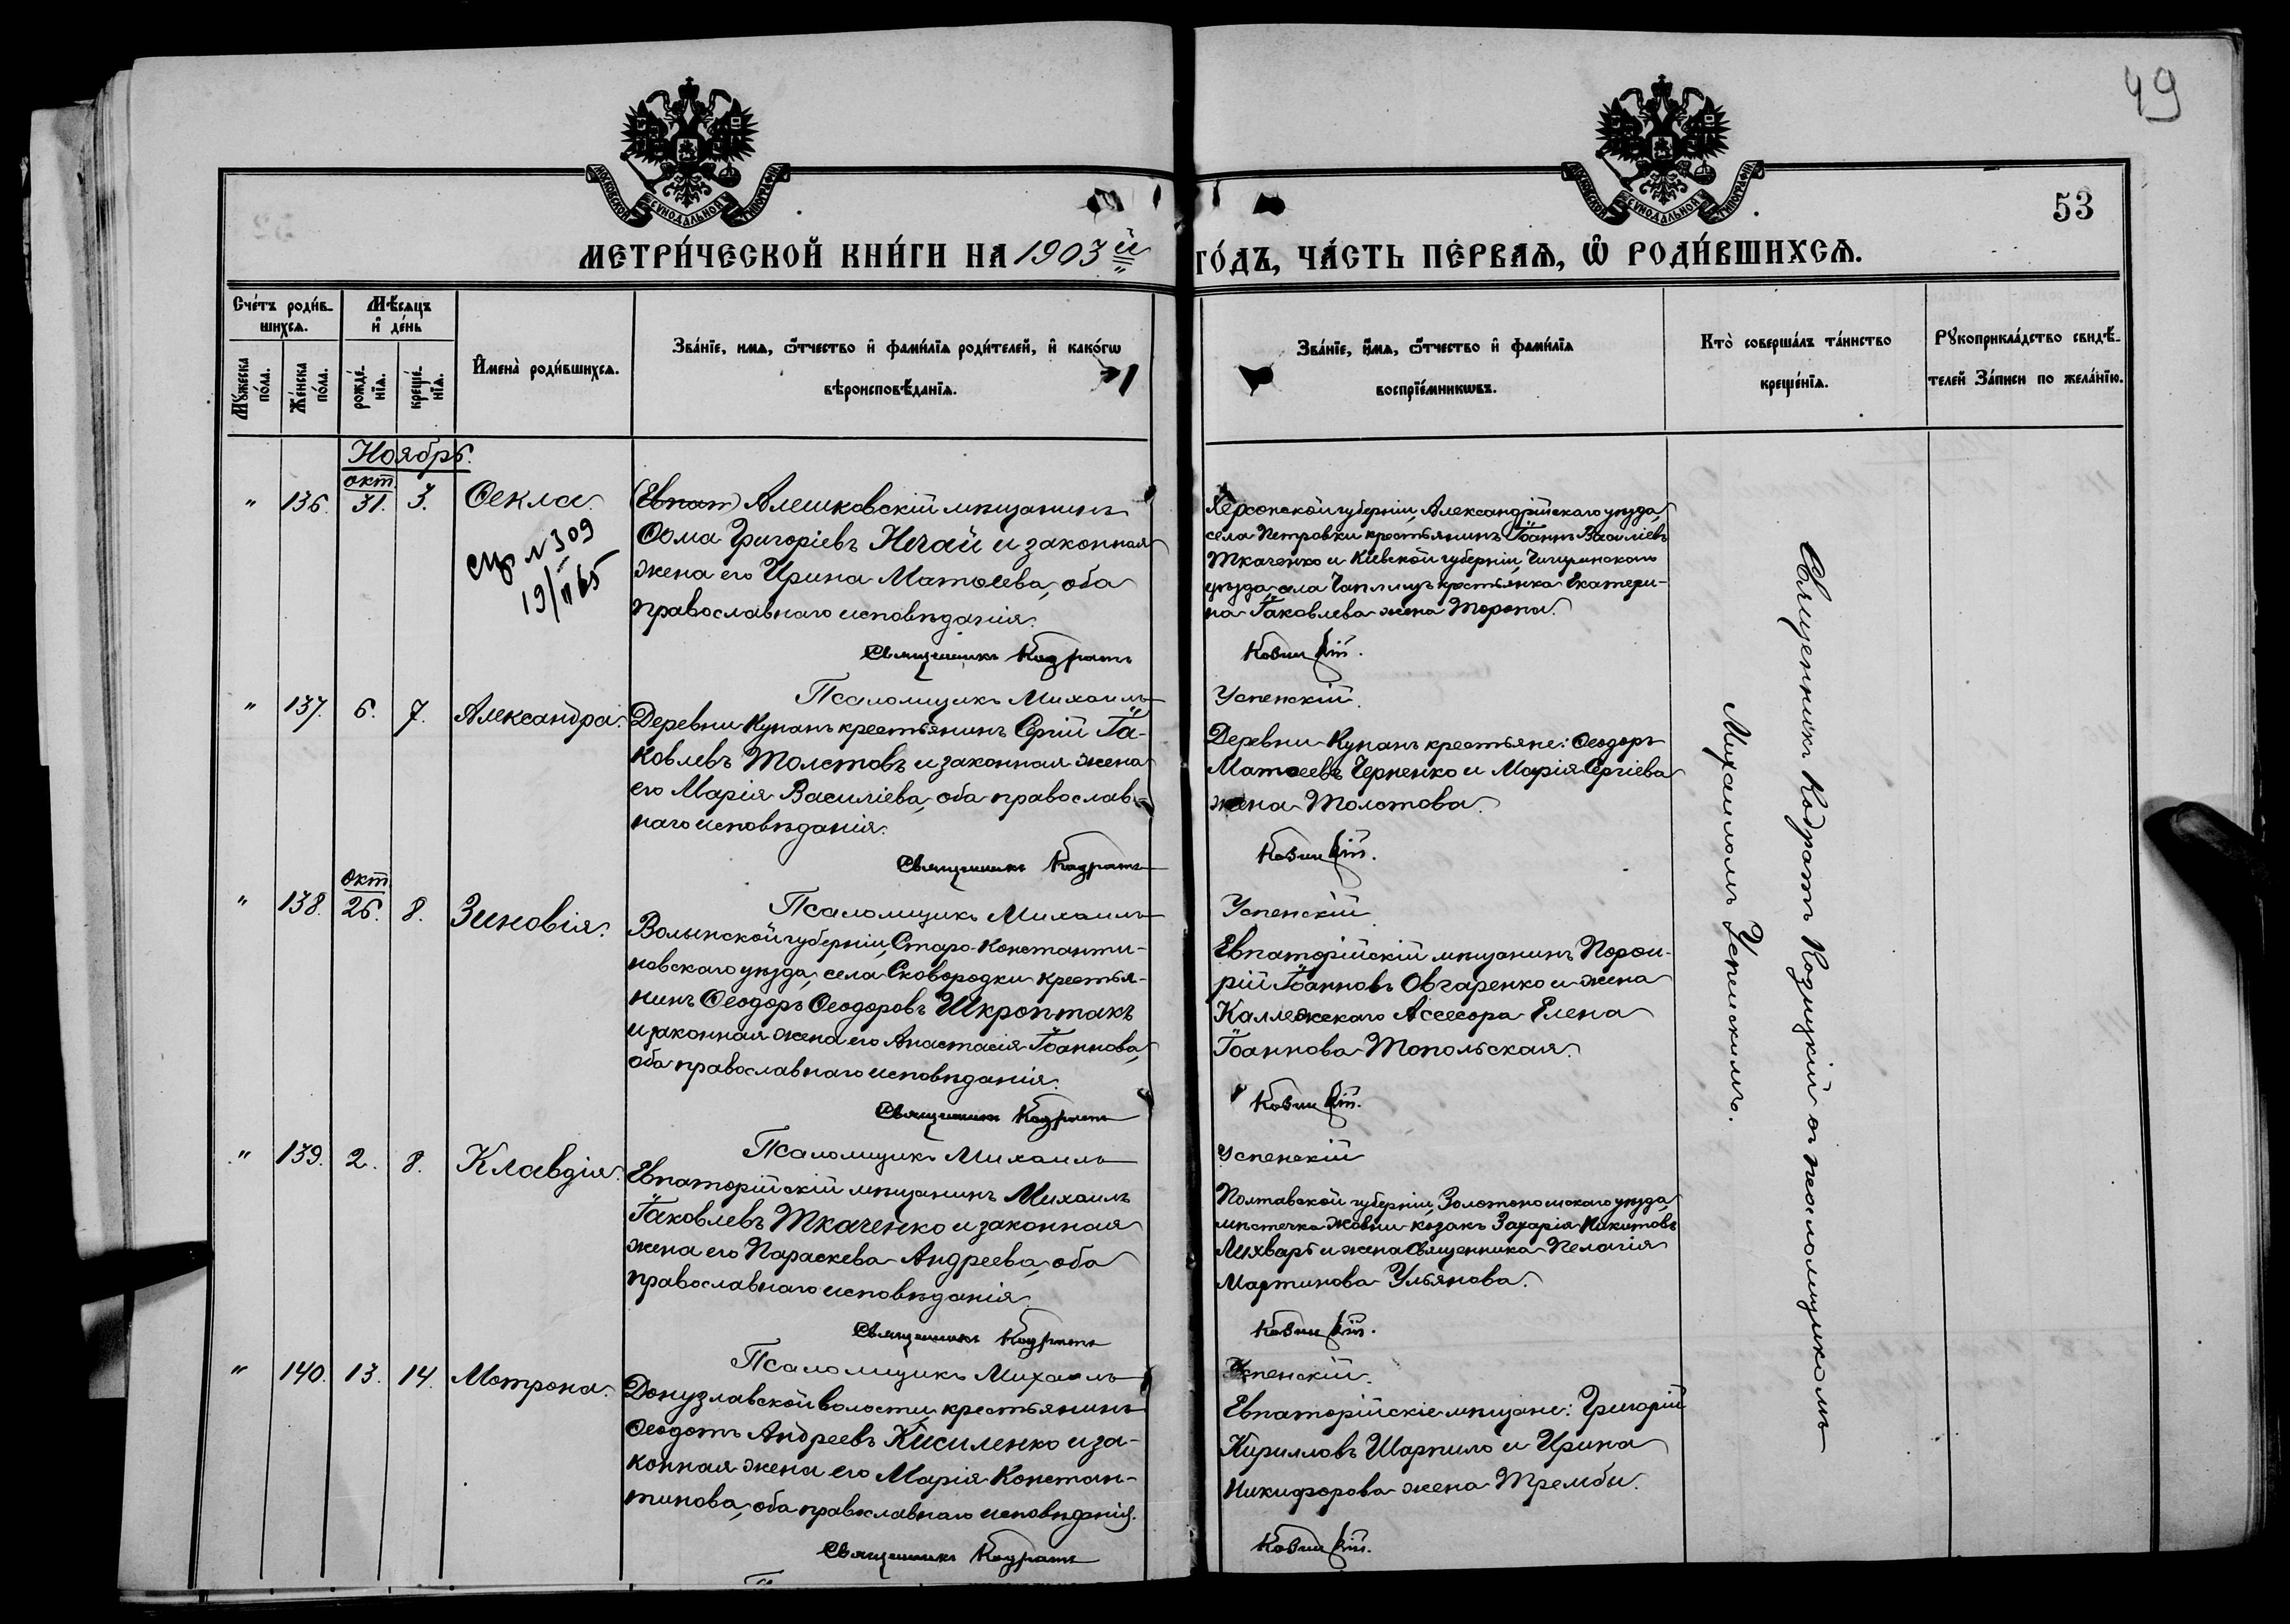 49
53
МОСКОВСКОЙ СѴНОДАЛЬНОЙ ТИПОГРАФІИ
МОСКОВСКОЙ СѴНОДАЛЬНОЙ ТИПОГРАФІИ
МЕТРИ́ЧЕСКОЙ КНИ́ГИ НА 1903й ГО́ДЪ, ЧА́СТЬ ПЕ́РВАѦ, Ѡ҆ РОДИ́ВШИХСѦ.
Сче́тъ роди́в-
шихсѧ.
Мꙋ́жеска по́ла.
Же́нска по́ла.
Мѣ́сяцъ
и҆ де́нь
рожде́-
нїѧ.
креще́-
нїѧ.
И҆мена̀ роди́вшихсѧ.
Зва́нїе, имѧ, ѻ҆́тчество и҆ фами́лїѧ роди́телей, и҆ како́гѡ
вѣроисповѣ́данїѧ.
Зва́нїе, и҆́мѧ, ѻ҆́тчество и҆ фами́лїѧ
воспрїе́мникѡвъ.
Кто̀ соверша́лъ та́инство
креще́нїѧ.
Рꙋкоприкла́дство свидѣ́-
телей За́писи по жела́нїю.
Ноябрь.
"
136.
окт.
31.
3.
Ѳекла.
спр N 309
19/II 65
(Евпат) Алешковскій мѣщанинъ
Ѳома Григоріевъ Нечай и законная
жена его Ирина Матѳеева, оба
православнаго исповѣданія.
Священникъ Кодратъ
Псаломщикъ Михаилъ
Херсонской губерніи, Александрійскаго уѣзда,
села Петровки крестьянинъ Іоаннъ Василіевъ
Ткаченко и Кіевской губерніи, Чигиринскаго
уѣзда, села Чаплищъ крестьянка Екатери-
на Іаковлева жена Торопа.
Козицкій.
Успенскій.
"
137.
6.
7.
Александра.
Деревни Кунанъ крестьянинъ Сергій Іа-
ковлевъ Толстовъ и законная жена
его Марія Василіева, оба православ-
наго исповѣданія.
Священникъ Кодратъ
Псаломщикъ Михаилъ
Деревни Кунанъ крестьяне: Ѳеодоръ
Матѳеевъ Черненко и Марія Сергіева
жена Толстова.
Козицкій.
Успенскій
"
138.
окт.
26.
8.
Зиновія.
Волынской губерніи, Старо-Константи-
новскаго уѣзда, села Сковородки крестья-
нинъ Ѳеодоръ Ѳеодоровъ Шкроптакъ
и законная жена его Анастасія Іоаннова,
оба православнаго исповѣданія.
Священникъ Кодратъ
Псаломщикъ Михаилъ
Евпаторійскій мѣщанинъ Порѳи-
рій Іоанновъ Овчаренко и жена
Коллежскаго Ассесора Елена
Іоаннова Топольская.
Козицкій.
Успенскій
"
139.
2.
8.
Клавдія.
Евпаторійскій мѣщанинъ Михаилъ
Іаковлевъ Ткаченко и законная
жена его Параскева Андреева, оба
православнаго исповѣданія.
Священникъ Кодратъ
Псаломщикъ Михаилъ
Полтавской губерніи, Золотоношскаго уѣзда,
мѣстечка Жовни козакъ Захарія Никитовъ
Лихварь и жена Священника Пелагія
Мартинова Ульянова.
Козицкій.
Успенскій.
"
140.
13.
14.
Мотрона.
Донузлавской волости крестьянинъ
Ѳеодотъ Андреевъ Кисиленко и за-
конная жена его Марія Констан-
тинова, оба православнаго исповѣданія.
Священникъ Кодратъ
Евпаторійскіе мѣщане: Григорій
Кирилловъ Шарпило и Ирина
Никифорова жена Трембы.
Козицкій.
Священникъ Кодратъ Козицкій съ псаломщикомъ
Михаиломъ Успенскимъ.